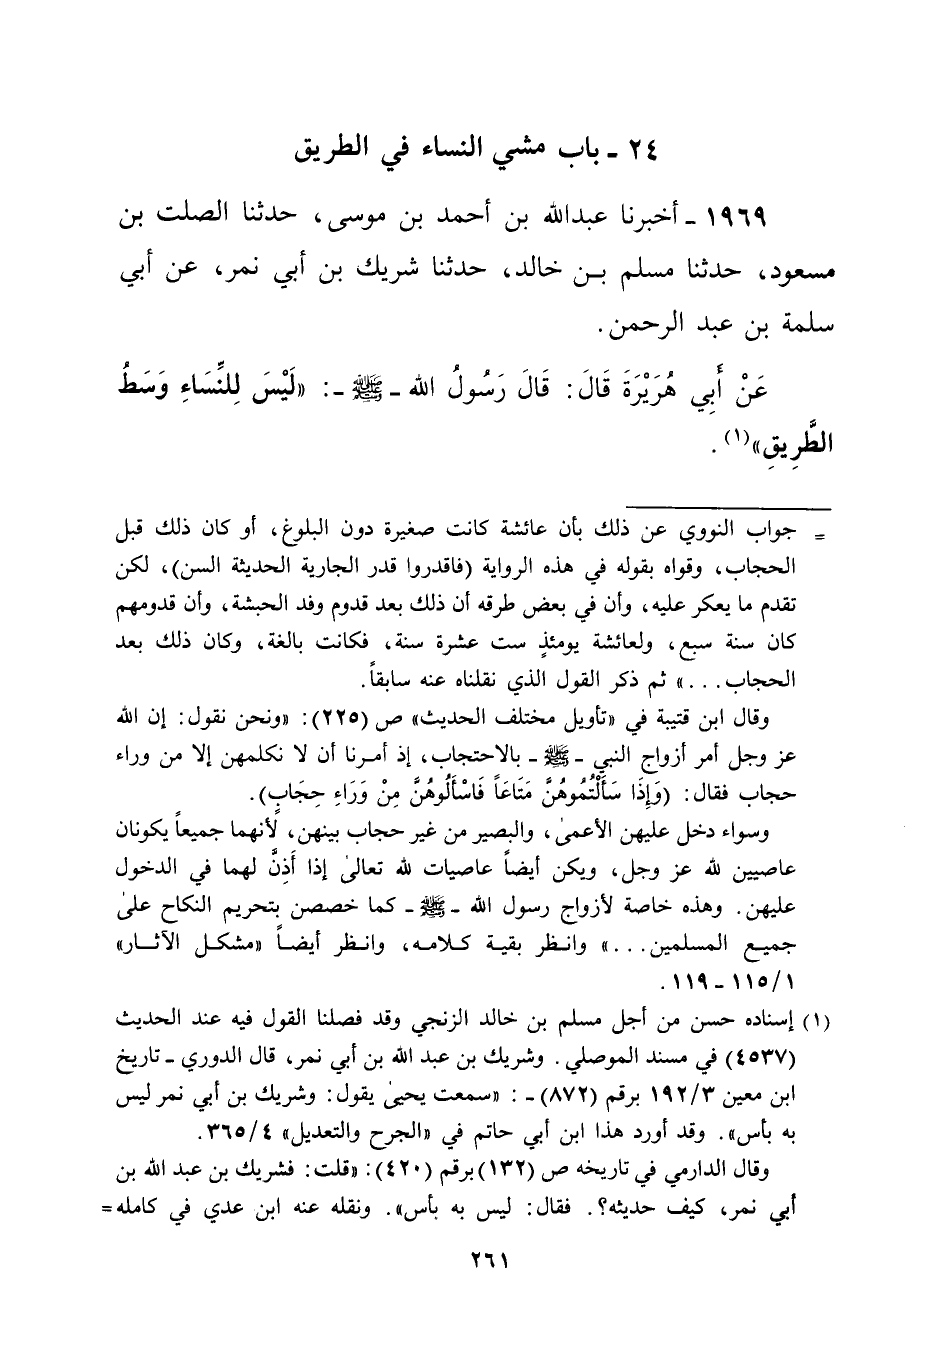 ٢٤ ـ باب مشي النساء في الطريق
١٩٦٩ ـ أخبرنا عبدالله بن أحمد بن موسى، حدثنا الصلت بن
مسعود، حدثنا مسلم بـن خالد، حدثنا شريك بن أبي نمر، عن أبي
سلمة بن عبد الرحمن.
عَنْ أَبِي هُرَيْرَةَ قَالَ: قَالَ رَسُولُ الله ـ ﷺ ـ: «لَيْسَ لِلنِّسَاءِ وَسَطُ
الطَّرِيقِ»(١).
= جواب النووي عن ذلك بأن عائشة كانت صغيرة دون البلوغ، أو كان ذلك قبل
الحجاب، وقواه بقوله في هذه الرواية (فاقدروا قدر الجارية الحديثة السن)، لكن
تقدم ما يعكر عليه، وأن في بعض طرقه أن ذلك بعد قدوم وفد الحبشة، وأن قدومهم
كان سنة سبع، ولعائشة يومئذٍ ست عشرة سنة، فكانت بالغة، وكان ذلك بعد
الحجاب...» ثم ذكر القول الذي نقلناه عنه سابقاً.
وقال ابن قتيبة في «تأويل مختلف الحديث» ص (٢٢٥): «ونحن نقول: إن الله
عز وجل أمر أزواج النبي ـ ﷺ ـ بالاحتجاب، إذ أمـرنا أن لا نكلمهن إلا من وراء
حجاب فقال: (وَإِذَا سَأَلْتُمُوهُنَّ مَتَاعَاً فَاسْأَلُوهُنَّ مِنْ وَرَاءِ حِجَابٍ).
وسواء دخل عليهن الأعمىٰ، والبصير من غير حجاب بينهن، لأنهما جميعاً يكونان
عاصيين لله عز وجل، ويكن أيضاً عاصيات لله تعالىٰ إذا أَذِنَّ لهما في الدخول
عليهن. وهذه خاصة لأزواج رسول الله ـ ﷺ ـ كما خصصن بتحريم النكاح علىٰ
جميع المسلمين...» وانظر بقية كـلامـه، وانـظر أيضـاً «مشكـل الآثـار»
١/ ١١٥ ـ ١١٩.
(١) إسناده حسن من أجل مسلم بن خالد الزنجي وقد فصلنا القول فيه عند الحديث
(٤٥٣٧) في مسند الموصلي. وشريك بن عبد الله بن أبي نمر، قال الدوري ـ تاريخ
ابن معين ٣/ ١٩٢ برقم (٨٧٢) ـ : «سمعت يحيىٰ يقول: وشريك بن أبي نمر ليس
به بأس». وقد أورد هذا ابن أبي حاتم في «الجرح والتعديل» ٤/ ٣٦٥.
وقال الدارمي في تاريخه ص (١٣٢) برقم (٤٢٠): «قلت: فشريك بن عبد الله بن
أبي نمر، كيف حديثه؟. فقال: ليس به بأس». ونقله عنه ابن عدي في كامله =
٢٦١